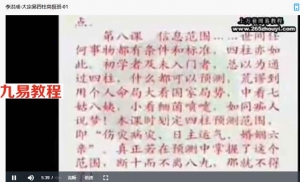 李洪成-大宗易四柱面授班-01
上力易用易教程
www.265zhouyi.com
点。
第八课 信息范围……世间任
何事物都有条件和标准，四柱亦如
此。初学者及未入门者，总以为通
过四柱，什么都可以预测，荒谬到
用个人命局大看国家局势，中看七
姑八姨，小看细菌喷嚏，如同痴人
说梦！本课时划定四柱预测范围，
即“伤灾病灾、日主运气、婚姻六
亲”。真正若在预测中掌握了这个
范围，断十而不离八九，那就不得
九易教程